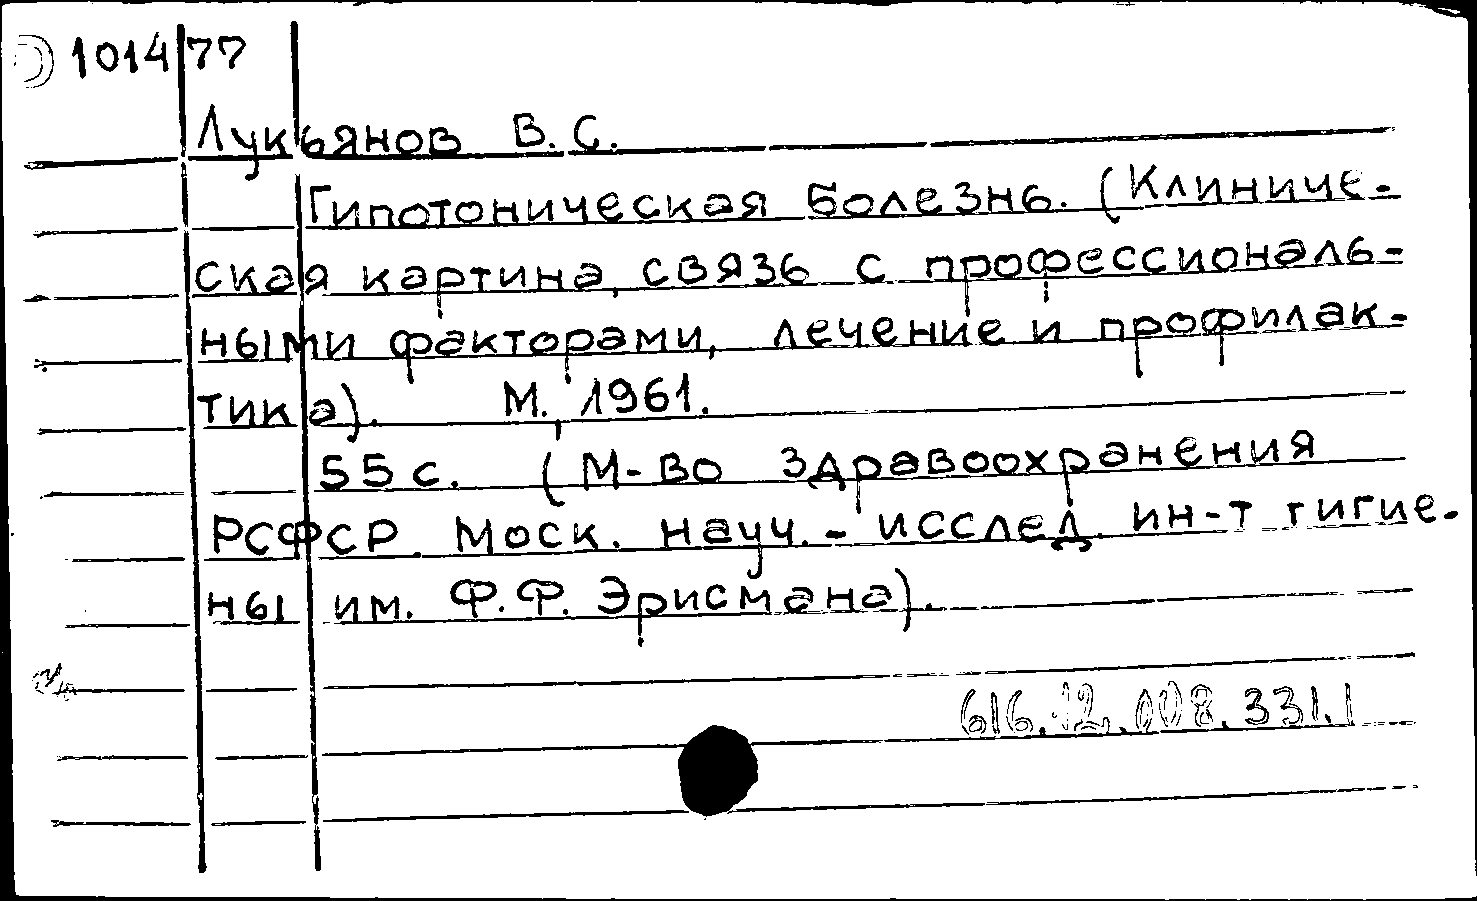 101477
Лукьянов В. С.
Гипотоническая болезнь. (Клиниче-
ская картина, связь с профессиональ-
ными факторами, лечение и профилак-
тика). М., 1961.
55 с. (М-во здравоохранения
РСФСР. Моск. науч.-исслед. ин-т гигие-
ны им. Ф. Ф. Эрисмана).
616.12.008.331.1